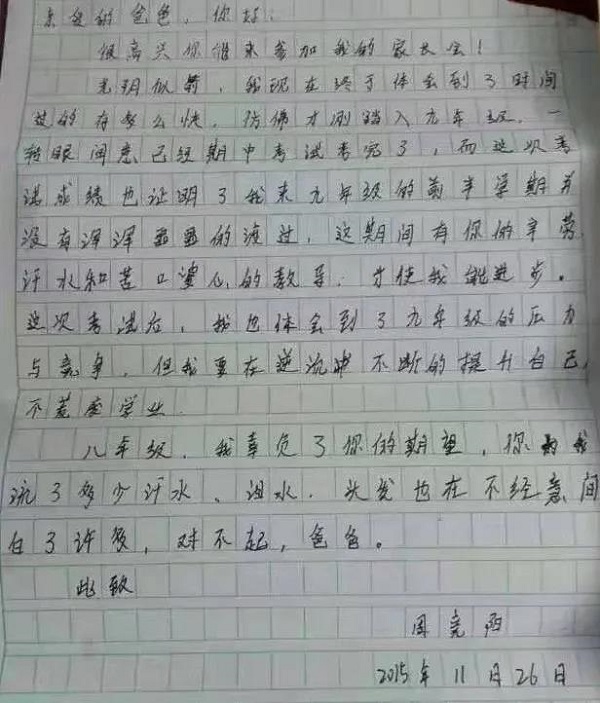 亲爱的爸爸，你好：
很高兴你能来参加我的家长会！
光阴似箭，我现在终于体会到了时间
过的有多么快，仿佛才刚踏入九年级，一
转眼间悉已经期中考试考完了，而这次考
试成绩也证明了我来九年级的前半学期并
没有浑浑噩噩的渡过，这期间有你的辛劳
汗水和苦口婆心的教导，才使我能进步。
这次考试后，我也体会到了九年级的压力
与竞争，但我要在逆流中不断的提升自己，
不荒废学业
八年级，我辜负了你的期望，你为我
流了多少汗水、泪水，头发也在不经意间
白了许多，对不起，爸爸。
此致
周亮阳
2015年11月26日